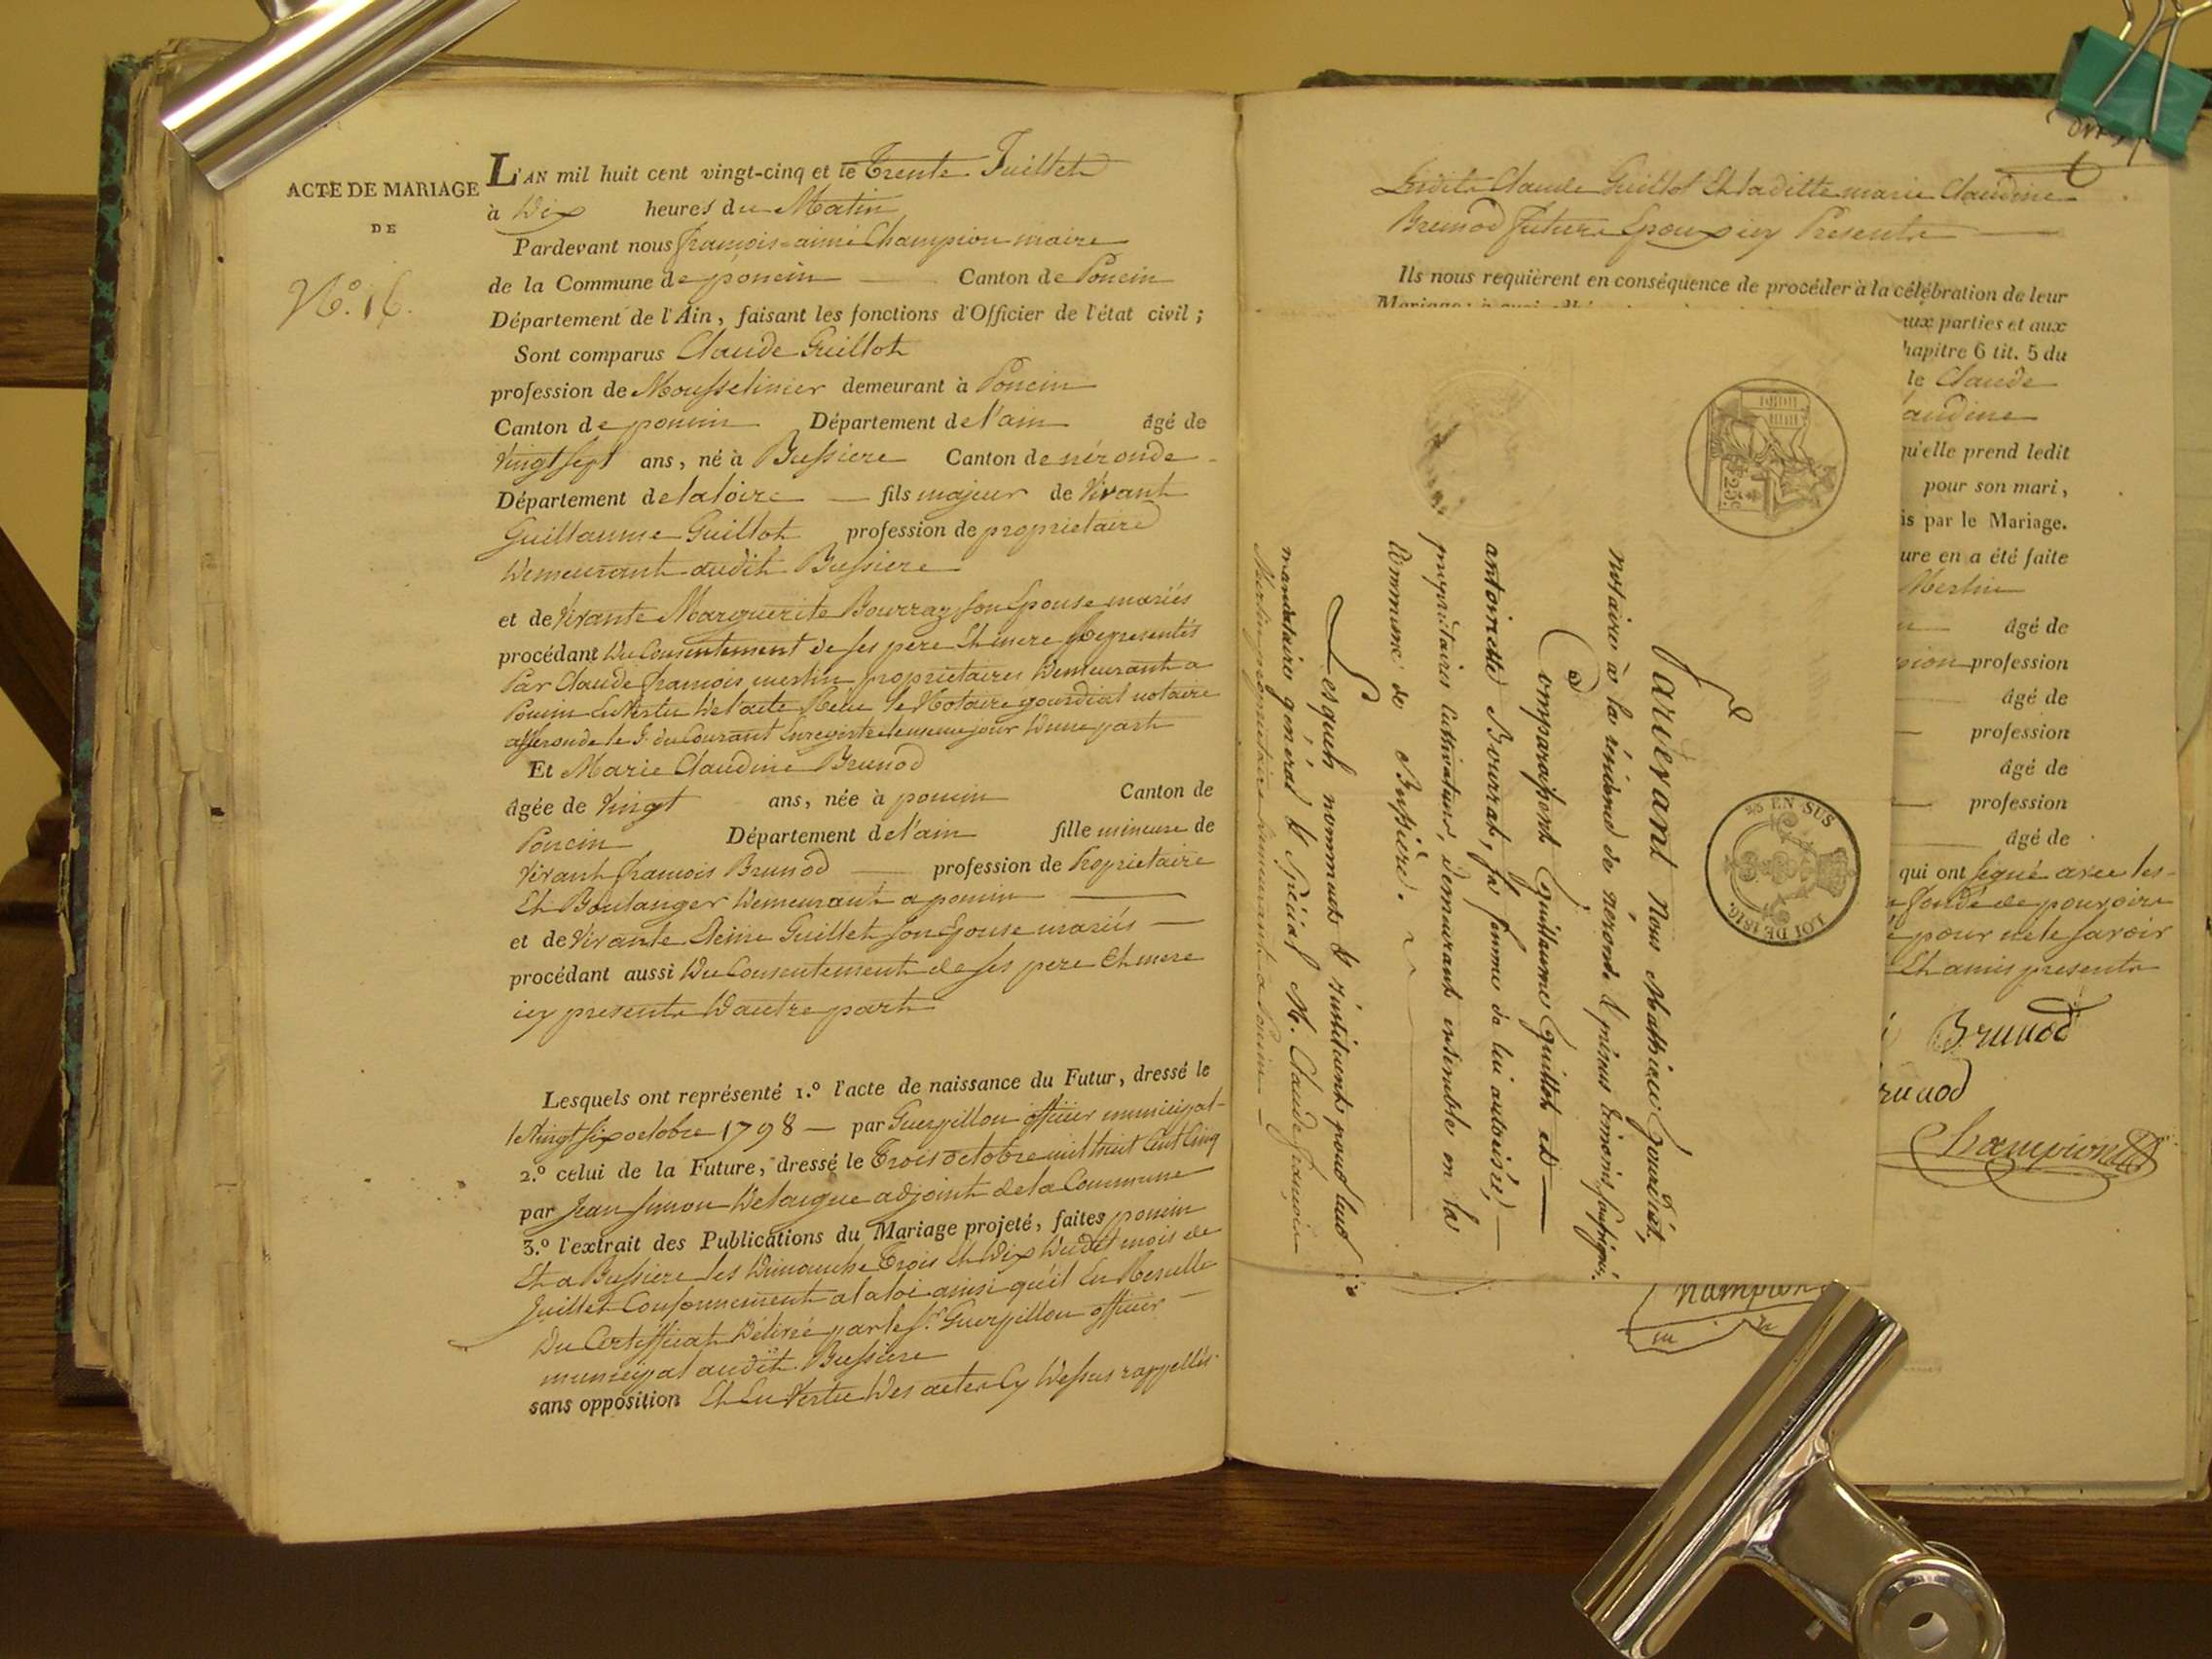 ACTE DE MARIAGE
DE
N.º 16.
L'AN mil huit cent vingt-cinq et le Trente Juillet
à Dix heures du Matin
Pardevant nous françois-aimé Champion maire
de la Commune de poncin — Canton de Poncin
Département de l'Ain, faisant les fonctions d'Officier de l'état civil ;
Sont comparus Claude Guillot
profession de Mousselinier demeurant à Poncin
Canton de poncin Département de l'ain âgé de
Vingt sept ans, né à Bussiere Canton de néronde
Département de la loire — fils majeur de Vivant
Guillaume Guillot profession de proprietaire
Demeurant audit Bussiere
et de Vivante Marguerite Bourraz son Epouse mariés
procédant Du Consentement de ses pere Et mere Representés
Par Claude françois merlin proprietaires Demeurant a
Poncin En Vertu De l'acte Reçu Me Notaire gourdiat notaire
a Neronde le 9. du Courant Enregistré le meme jour D'une part
Et Marie Claudine Brunod
âgée de Vingt ans, née à poncin Canton de
Poncin Département de l'ain fille mineure de
Vivant françois Brunod — profession de Proprietaire
Et Boulanger Demeurant a poncin —
et de Vivante Reine Guillet son Epouse mariés —
procédant aussi Du Consentement de ses pere Et mere
icy presents D'autre part
Lesquels ont représenté 1.º l'acte de naissance du Futur, dressé le
le Vingt six octobre 1798 — par Guerpillon officier municipal
2.º celui de la Future, dressé le Trois octobre mil huit Cent Cinq
par Jean Simon Delaigue adjoint de la Commune
3.º l'extrait des Publications du Mariage projeté, faites poncin
Et a Bussiere les Dimanche Trois Et Dix Dudit mois de
Juillet Conformement a la loi ainsi qu'il En Resulte
Du Certifficat Délivré par le Sr. Guerpillon officier
municipal audit Bussiere
sans opposition Et En Vertu Des actes Cy Dessus rappellés
Ledit Claude Guillot Et laditte marie Claudine
Brunod future Epoux icy Presents
Ils nous requièrent en conséquence de procéder à la célébration de leur
ux parties et aux
hapitre 6 tit. 5 du
le Claude
audine
qu'elle prend ledit
pour son mari,
is par le Mariage.
ure en a été faite
Merlin
âgé de
pion profession
âgé de
profession
âgé de
profession
âgé de
qui ont signé avec les
fondé de pouvoirs
pour ne le savoir
Et amis presents
Brunod
runod
Champion
25c
2/5 EN SUS
LOI DE 1816.
Pardevant Nous Mathieu Gourdiat,
notaire à la résidence de néronde & présens témoins soussignés,
Comparaissent Guillaume Guillot et
antoinette Bourrat, sa femme de lui autorisée,
propriétaires cultivateurs, demeurant ensemble en la
Commune de Bussière.
Lesquels nomment & instituent pour leur
mandataire général & spécial M. Claude françois
Merlin proprietaire demeurant a Poncin